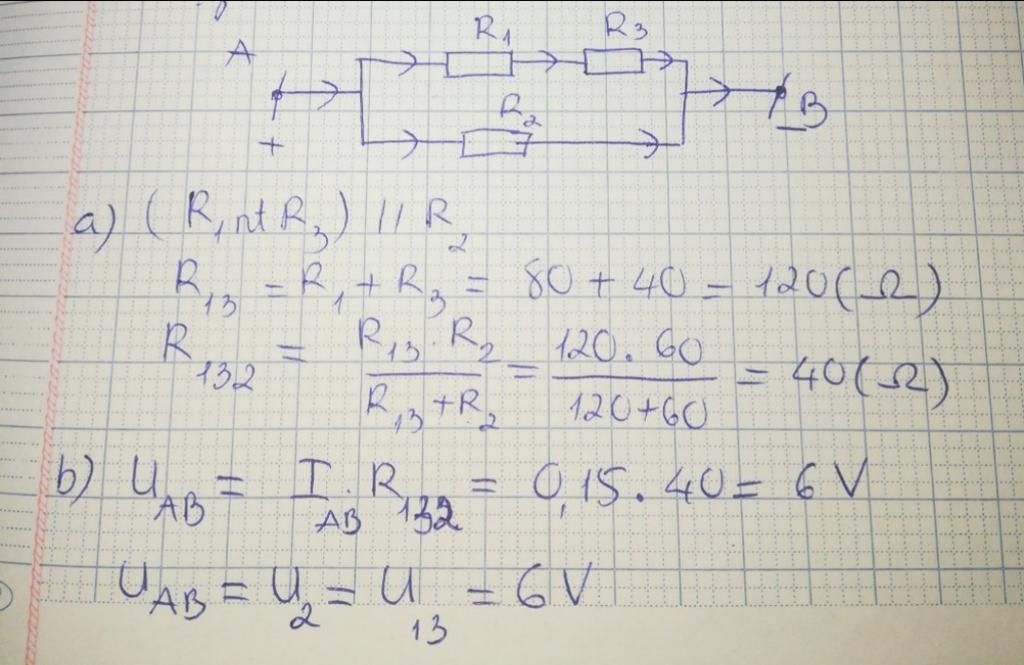 R₁ R₃
A
R₂
+ _B
a) (R₁ nt R₃) // R₂
R₁₃ = R₁ + R₃ = 80 + 40 = 120(Ω)
R₁₃₂ = R₁₃ . R₂ / R₁₃ + R₂ = 120 . 60 / 120+60 = 40(Ω)
b) U_AB = I_AB . R₁₃₂ = 0,15 . 40 = 6 V
U_AB = U₂ = U₁₃ = 6 V